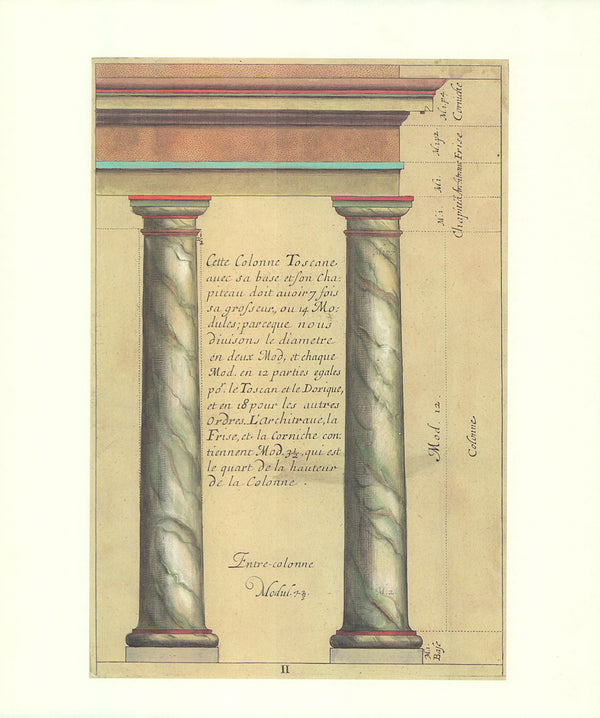 Cette Colonne Toscane
avec sa base et son Cha:
piteau doit avoir 7 fois
sa grosseur, ou 14 Mo:
dules; parceque nous
divisons le diametre
en deux Mod, et chaque
Mod. en 12 parties egales
po.r le Toscan et le Dorique,
et en 18 pour les autres
Ordres. L'Architrave, la
Frise, et la Corniche con:
tiennent Mod. 3½, qui est
le quart de la hauteur
de la Colonne.
Entre-colonne
Modul. 
Corniche
M 1. p 4
Frise
M 1. p 2
Architrave
M 1.
Chapiteâ
M 1
Mod. 12.
Colonne
M. 2
M 1
Base
II